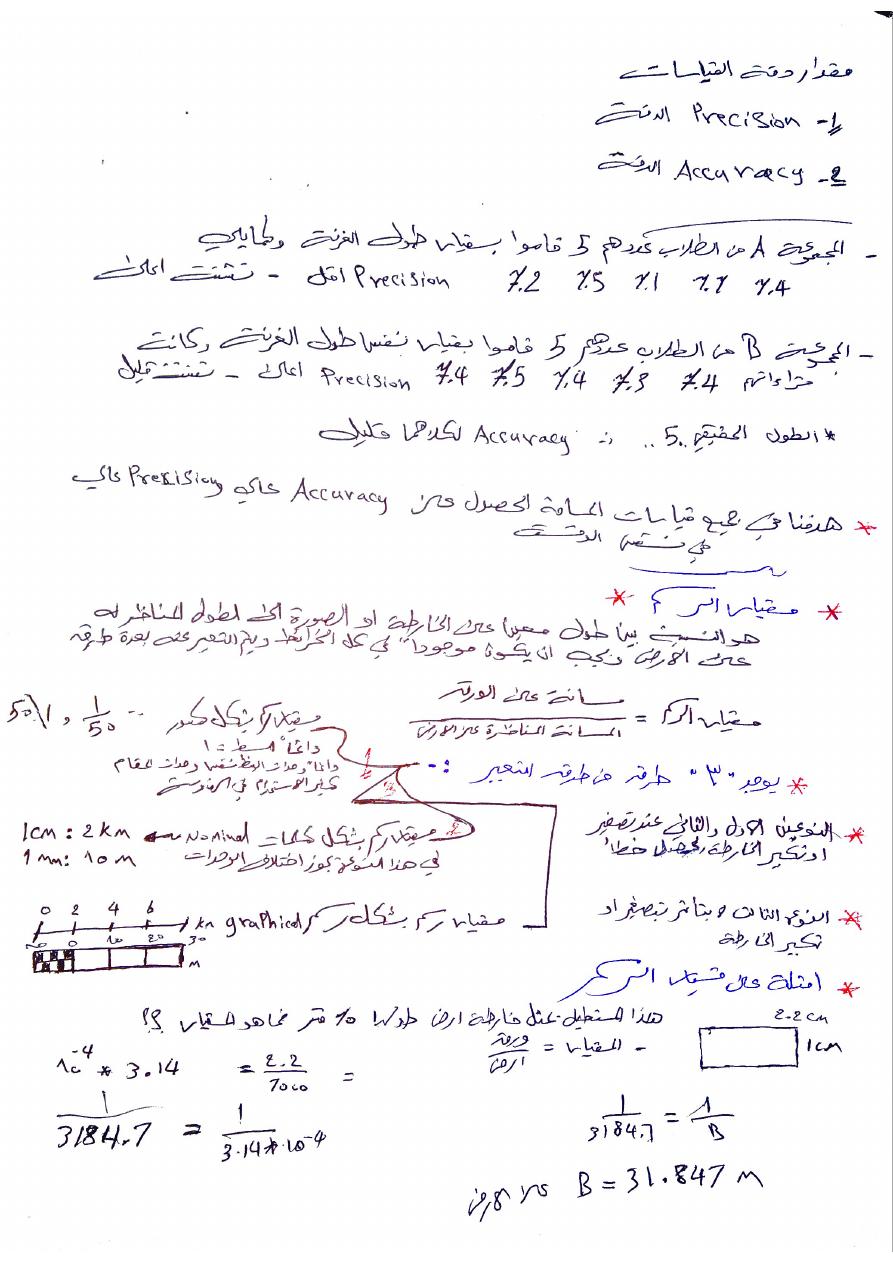 مقدار دقة القياسات
1- Precision الدقة
2- Accuracy الدقة
- المجموعة A من الطلاب عددهم 5 قاموا بقياس طول الغرفة وكمايلي
7.4 7.7 7.1 7.5 7.2 Precision اقل - تشتت اعلى
- المجموعة B من الطلاب عددهم 5 قاموا بقياس نفس طول الغرفة وكانت
قراءاتهم 7.4 7.3 7.4 7.5 7.4 Precision اعلى - تشتت قليل
* الطول الحقيقي 5 .. ∴ Accuracy لكلاهما قليل
* هدفنا في جميع قياسات المساحة الحصول على Accuracy عالي و Precision عالي
في نفس الوقت
* مقياس الرسم *
هو النسبة بين طول معين على الخارطة او الصورة الى الطول المناظر له
على الارض ويجب ان يكون موجوداً في كل الخرائط ويتم التعبير عنه بعدة طرق
مقياس الرسم = مسافة على الورقة / المسافة المناظرة على الارض
* يوجد "٣" طرق من طرق التعبير :-
1 مقياس رسم بشكل كسر :- 1/50 , 1\50
دائماً البسط = ١
دائماً وحدات البسط نفسها وحدات المقام
كثير الاستخدام في الهندسة
2 مقياس رسم بشكل كلمات Nominal 1cm : 2 km
في هذا النوع يجوز اختلاف الوحدات 1 mm : 10 m
3 مقياس رسم بشكل رسم graphical
0 2 4 6 km
20 0 10 20 30
M
* النوعين الاول والثاني عند تصغير
او تكبير الخارطة يحصل خطأ
* النوع الثالث لا يتأثر بتصغير او
تكبير الخارطة
* امثلة على مقياس الرسم
هذا المستطيل يمثل خارطة ارض طولها 70 متر فما هو المقياس ؟؟
2.2 cm
1 cm
- المقياس = ورقة / ارض
= 2.2 / 7000 = 3.14 * 10^-4
1 / 3.14 * 10^-4 = 1 / 3184.7
1 / 3184.7 = 1 / B
B = 31.847 m على الارض